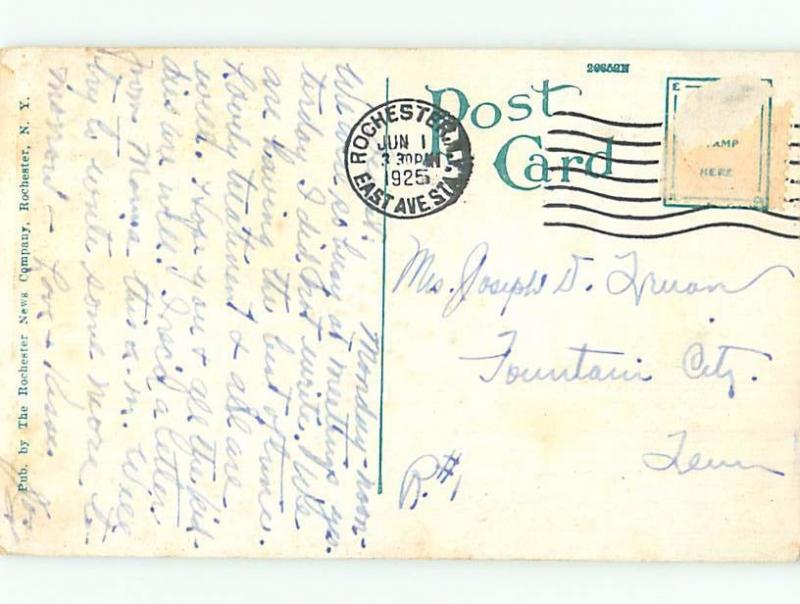 20652N
Post
Card
ROCHESTER, N.Y.
JUN 1
3 30 PM
1925
EAST AVE STA.
STAMP
HERE
Mrs. Joseph D.
Fountain City.
Tenn
R. #1
Monday - noon -
We were so busy at meetings yes-
terday I did not write. We
are having the best of times.
Lovely treatment & all are
well. Hope you & all the kid-
dies are well! I rec'd a letter
from Mama this a.m. Will
try to write some more to
morrow - Love & kisses
Pub. by The Rochester News Company, Rochester, N. Y.